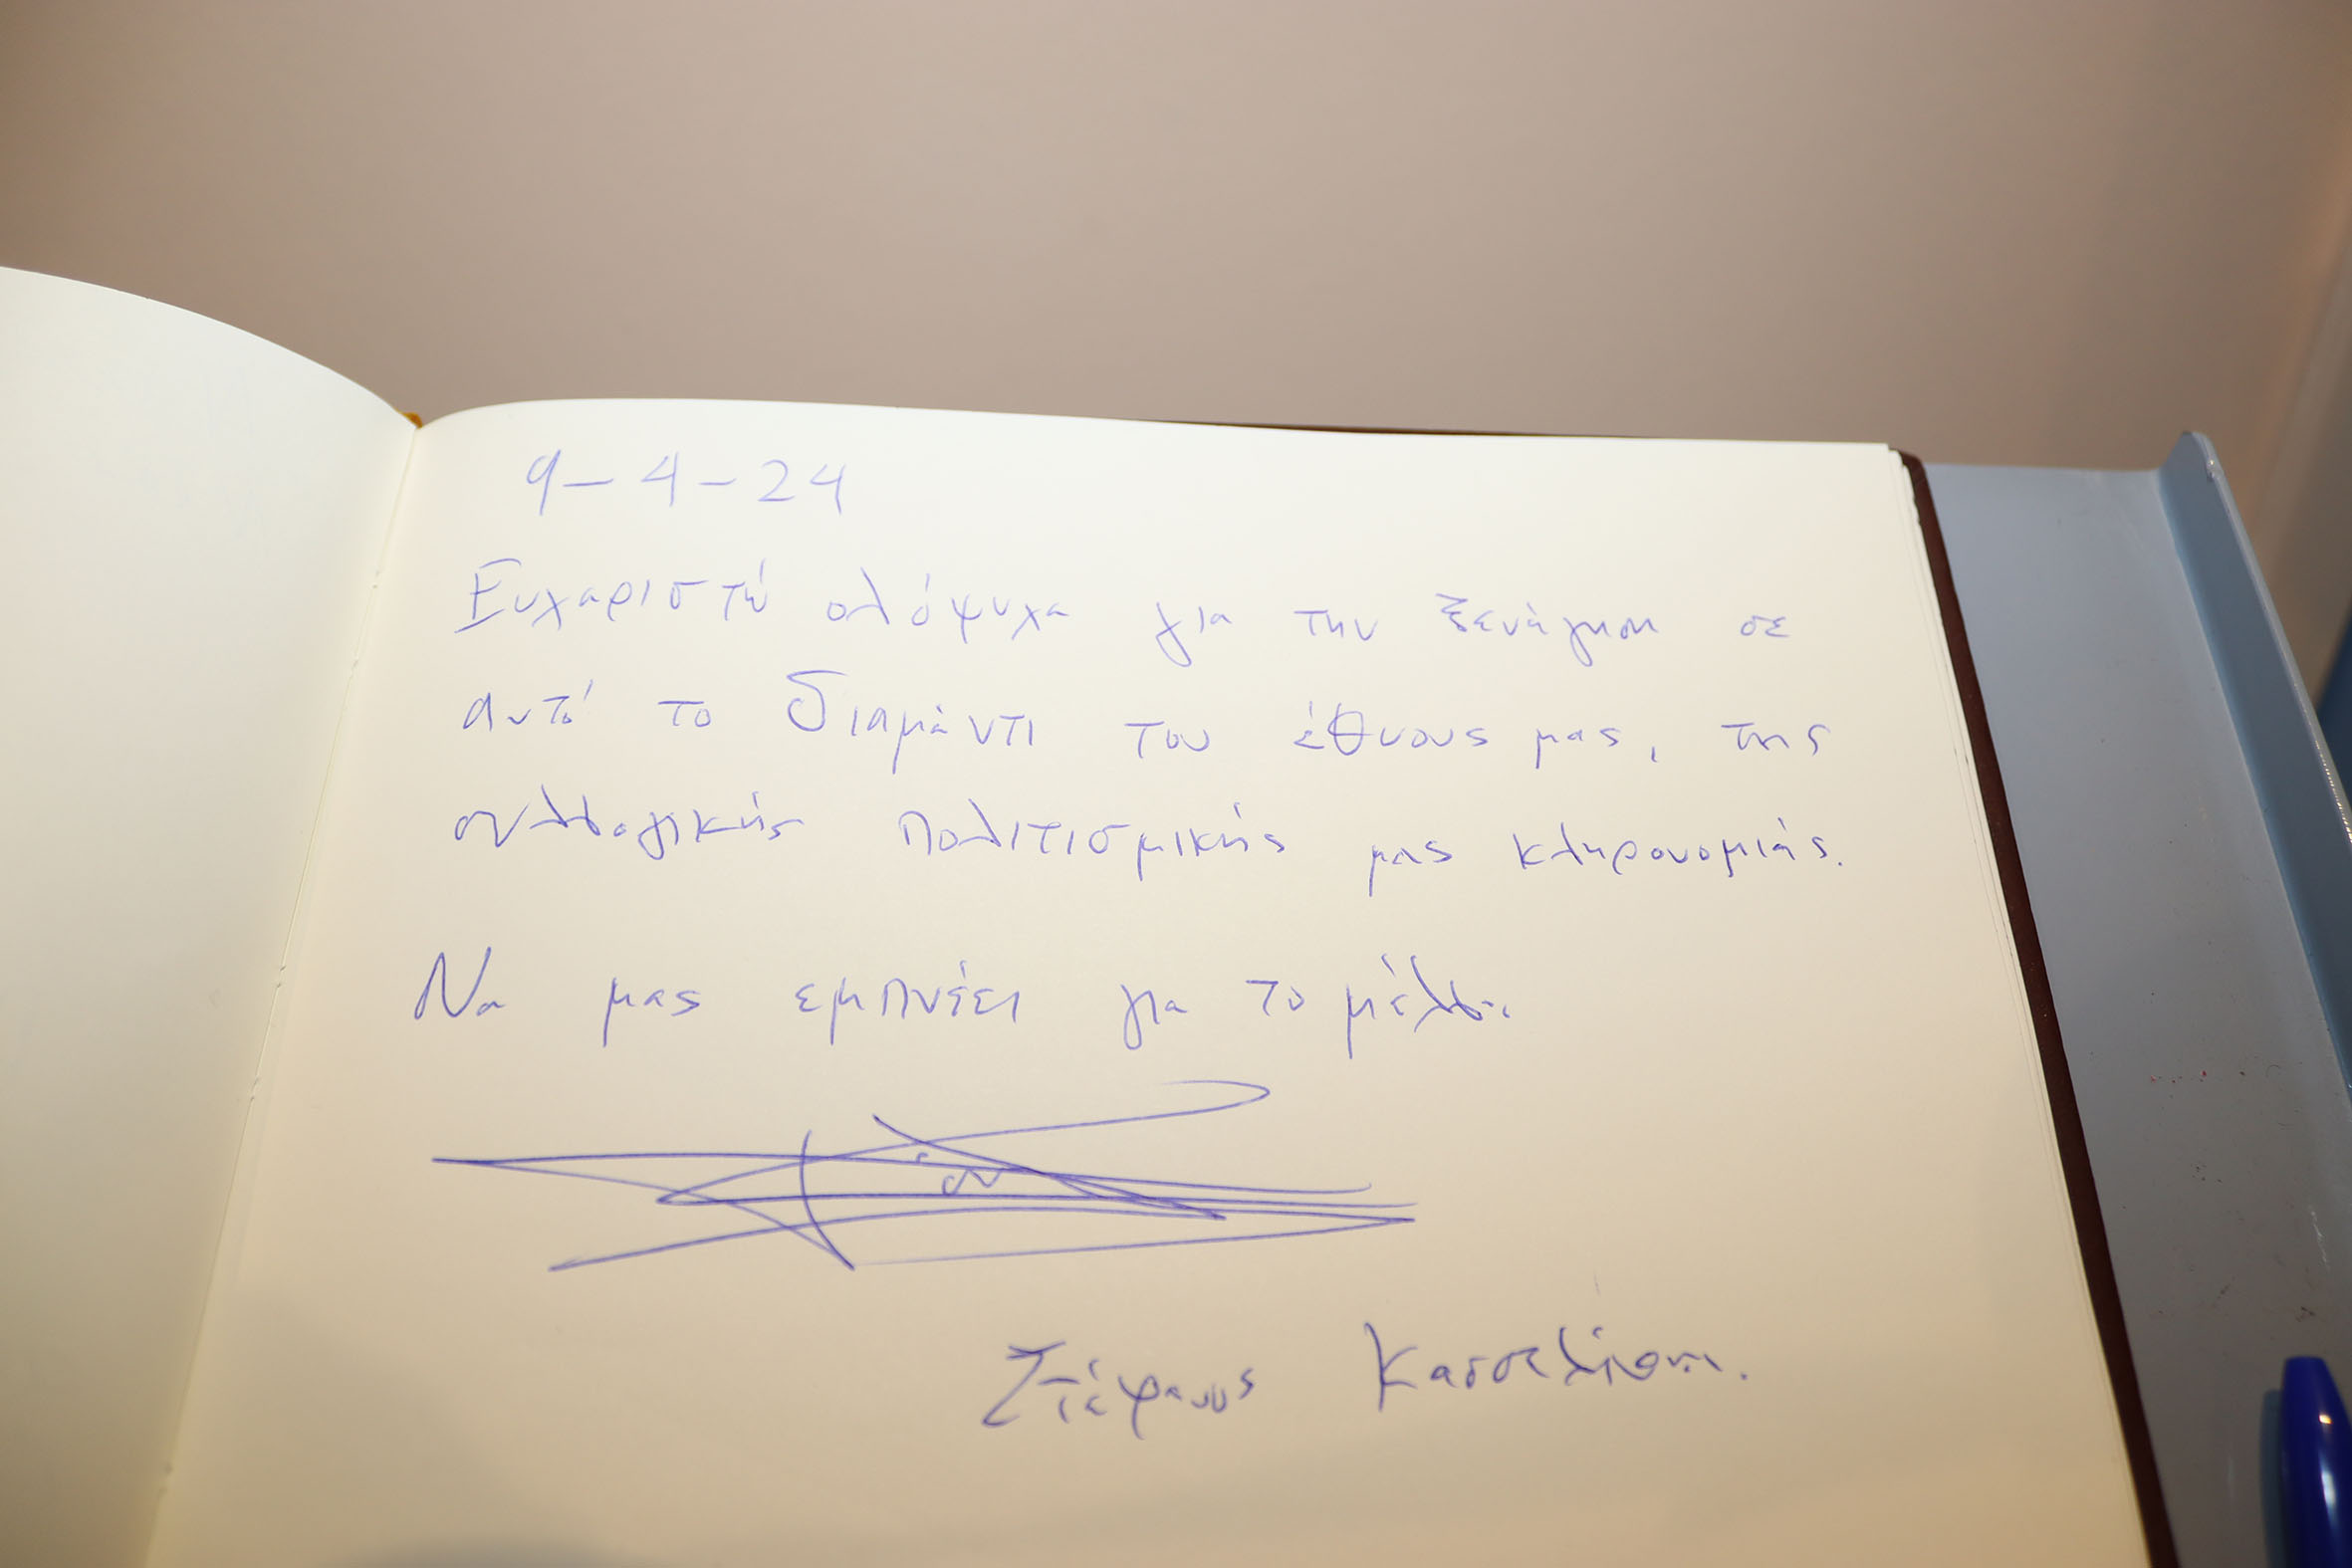 9-4-24
Ευχαριστώ ολόψυχα για την ξενάγηση σε
αυτό το διαμάντι του έθνους μας, της
συλλογικής πολιτισμικής μας κληρονομιάς.
Να μας εμπνέει για το μέλλον
Στέφανος Κασσελάκης.